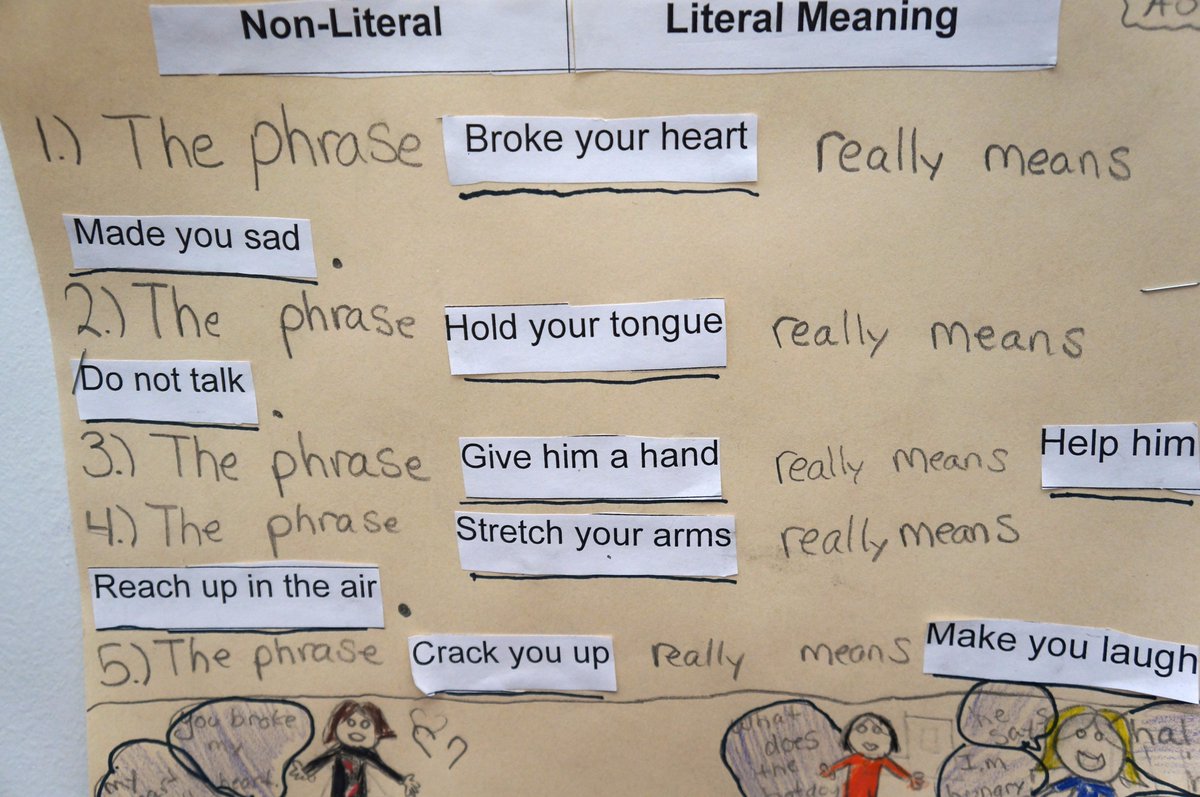 Non-Literal Literal Meaning
1.) The phrase Broke your heart really means
Made you sad.
2.) The phrase Hold your tongue really means
Do not talk.
3.) The phrase Give him a hand really means Help him
4.) The phrase Stretch your arms really means
Reach up in the air.
5.) The phrase Crack you up really means Make you laugh
you broke
my
heart.
my
What
does
the
he
says
I'm
hungry
ha!